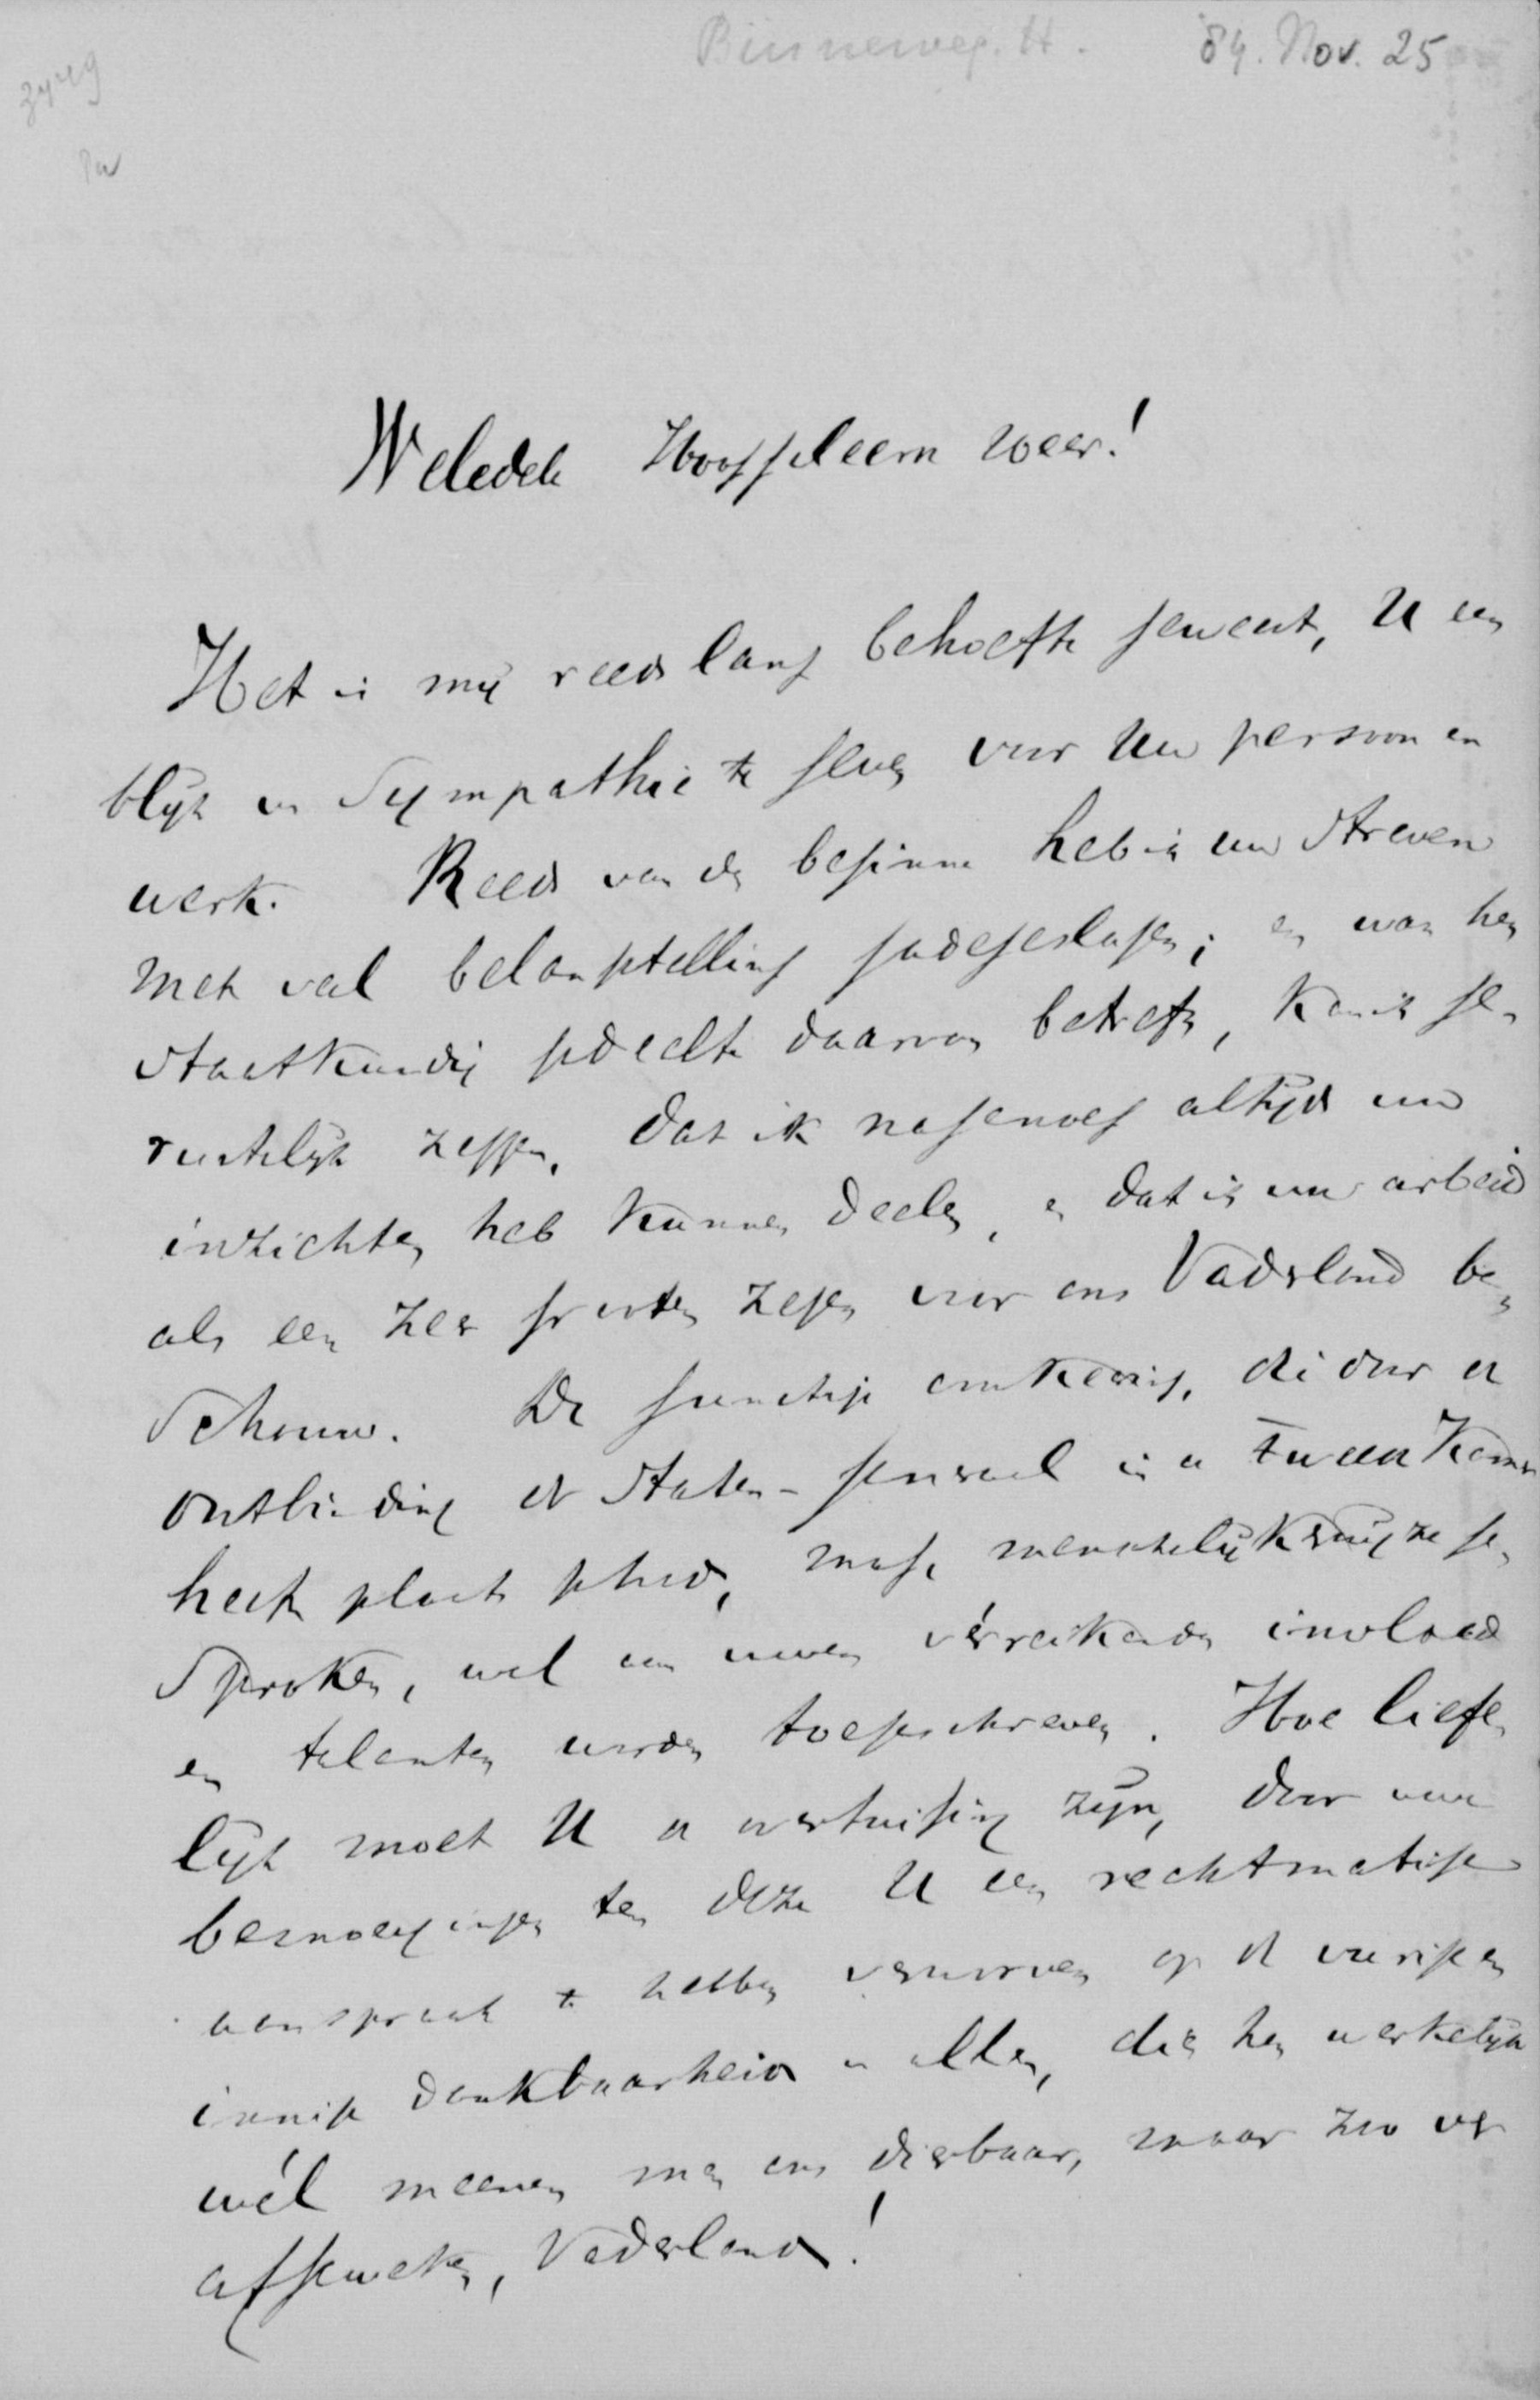 Binneweg. H. 84. Nov. 25
Weledele Hooggeleerde Heer!
Het is mij reeds lang behoefte geweest, U een
blijk van Sympathie te geven voor Uw persoon en
werk. Reeds van den beginne heb ik uw streven
met veel belangstelling gadegeslagen; en wat het
staatkundig gedeelte daarvan betreft, kan ik ge-
rustelijk zeggen, dat ik nagenoeg altijd uw
inzichten heb kunnen deelen, en dat ik uw arbeid
als een zeer grooten zegen voor ons Vaderland be-
schouw. De gunstige omkeering, die door de
ontbinding der Staten-generaal in de Tweede Kamer
heeft plaats gehad, mag, menschelijkerwijze ge-
sproken, wel aan uwen vérreikenden invloed
en talenten worden toegeschreven. Hoe liefe-
lijk moet U de overtuiging zijn, door uwe
bemoeyingen ten deze U een rechtmatige
aanspraak te hebben verworven op de vurige en
innige dankbaarheid van allen, die het werkelijk
wél meenen met ons dierbaar, maar zoo ver
afgeweken, Vaderland!